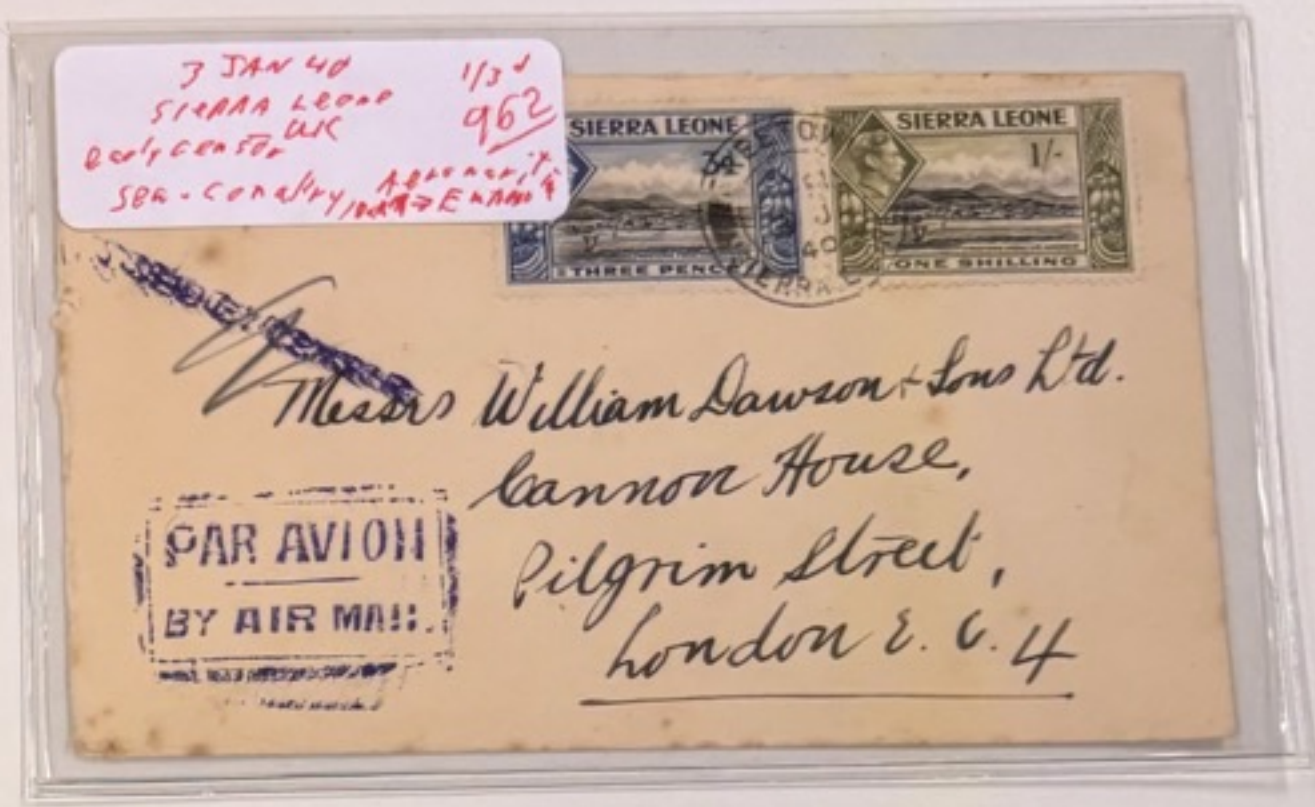 3 JAN 40
1/3d
SIERRA LEONE
962
UK
early censor
Sea - Conakry
SIERRA LEONE
3d
THREE PENCE
SIERRA LEONE
1/-
ONE SHILLING
40
Messrs William Dawson & Sons Ltd.
Cannon House,
Pilgrim Street,
London E. C. 4
PAR AVION
BY AIR MAIL